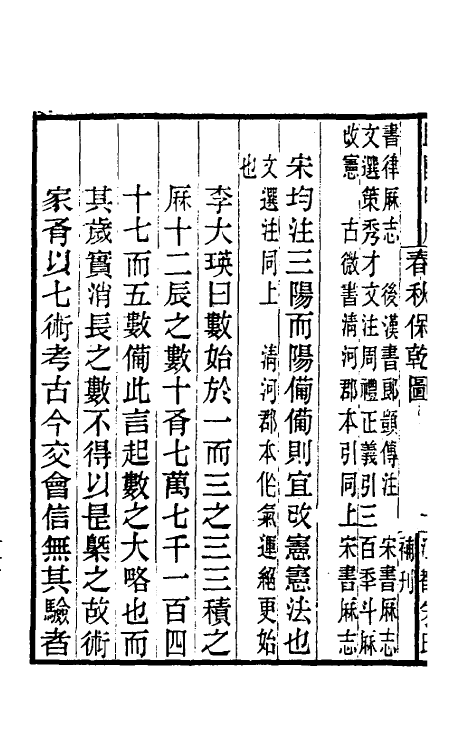 春秋保乾圖
補刊
書律厤志　後漢書郎顗傳注　宋書厤志
文選策秀才文注周禮正義引三百季斗厤
改憲　古微書清河郡本引同上宋書厤志
宋均注三陽而陽備備則宜改憲憲法也
文選注同上　清河郡本作氣運絕更始
也
李大瑛曰數始於一而三之三三積之
厤十二辰之數十有七萬七千一百四
十七而五數備此言起數之大略也而
其歲實消長之數不得以是槩之故術
家有以七術考古今交會信無其驗者